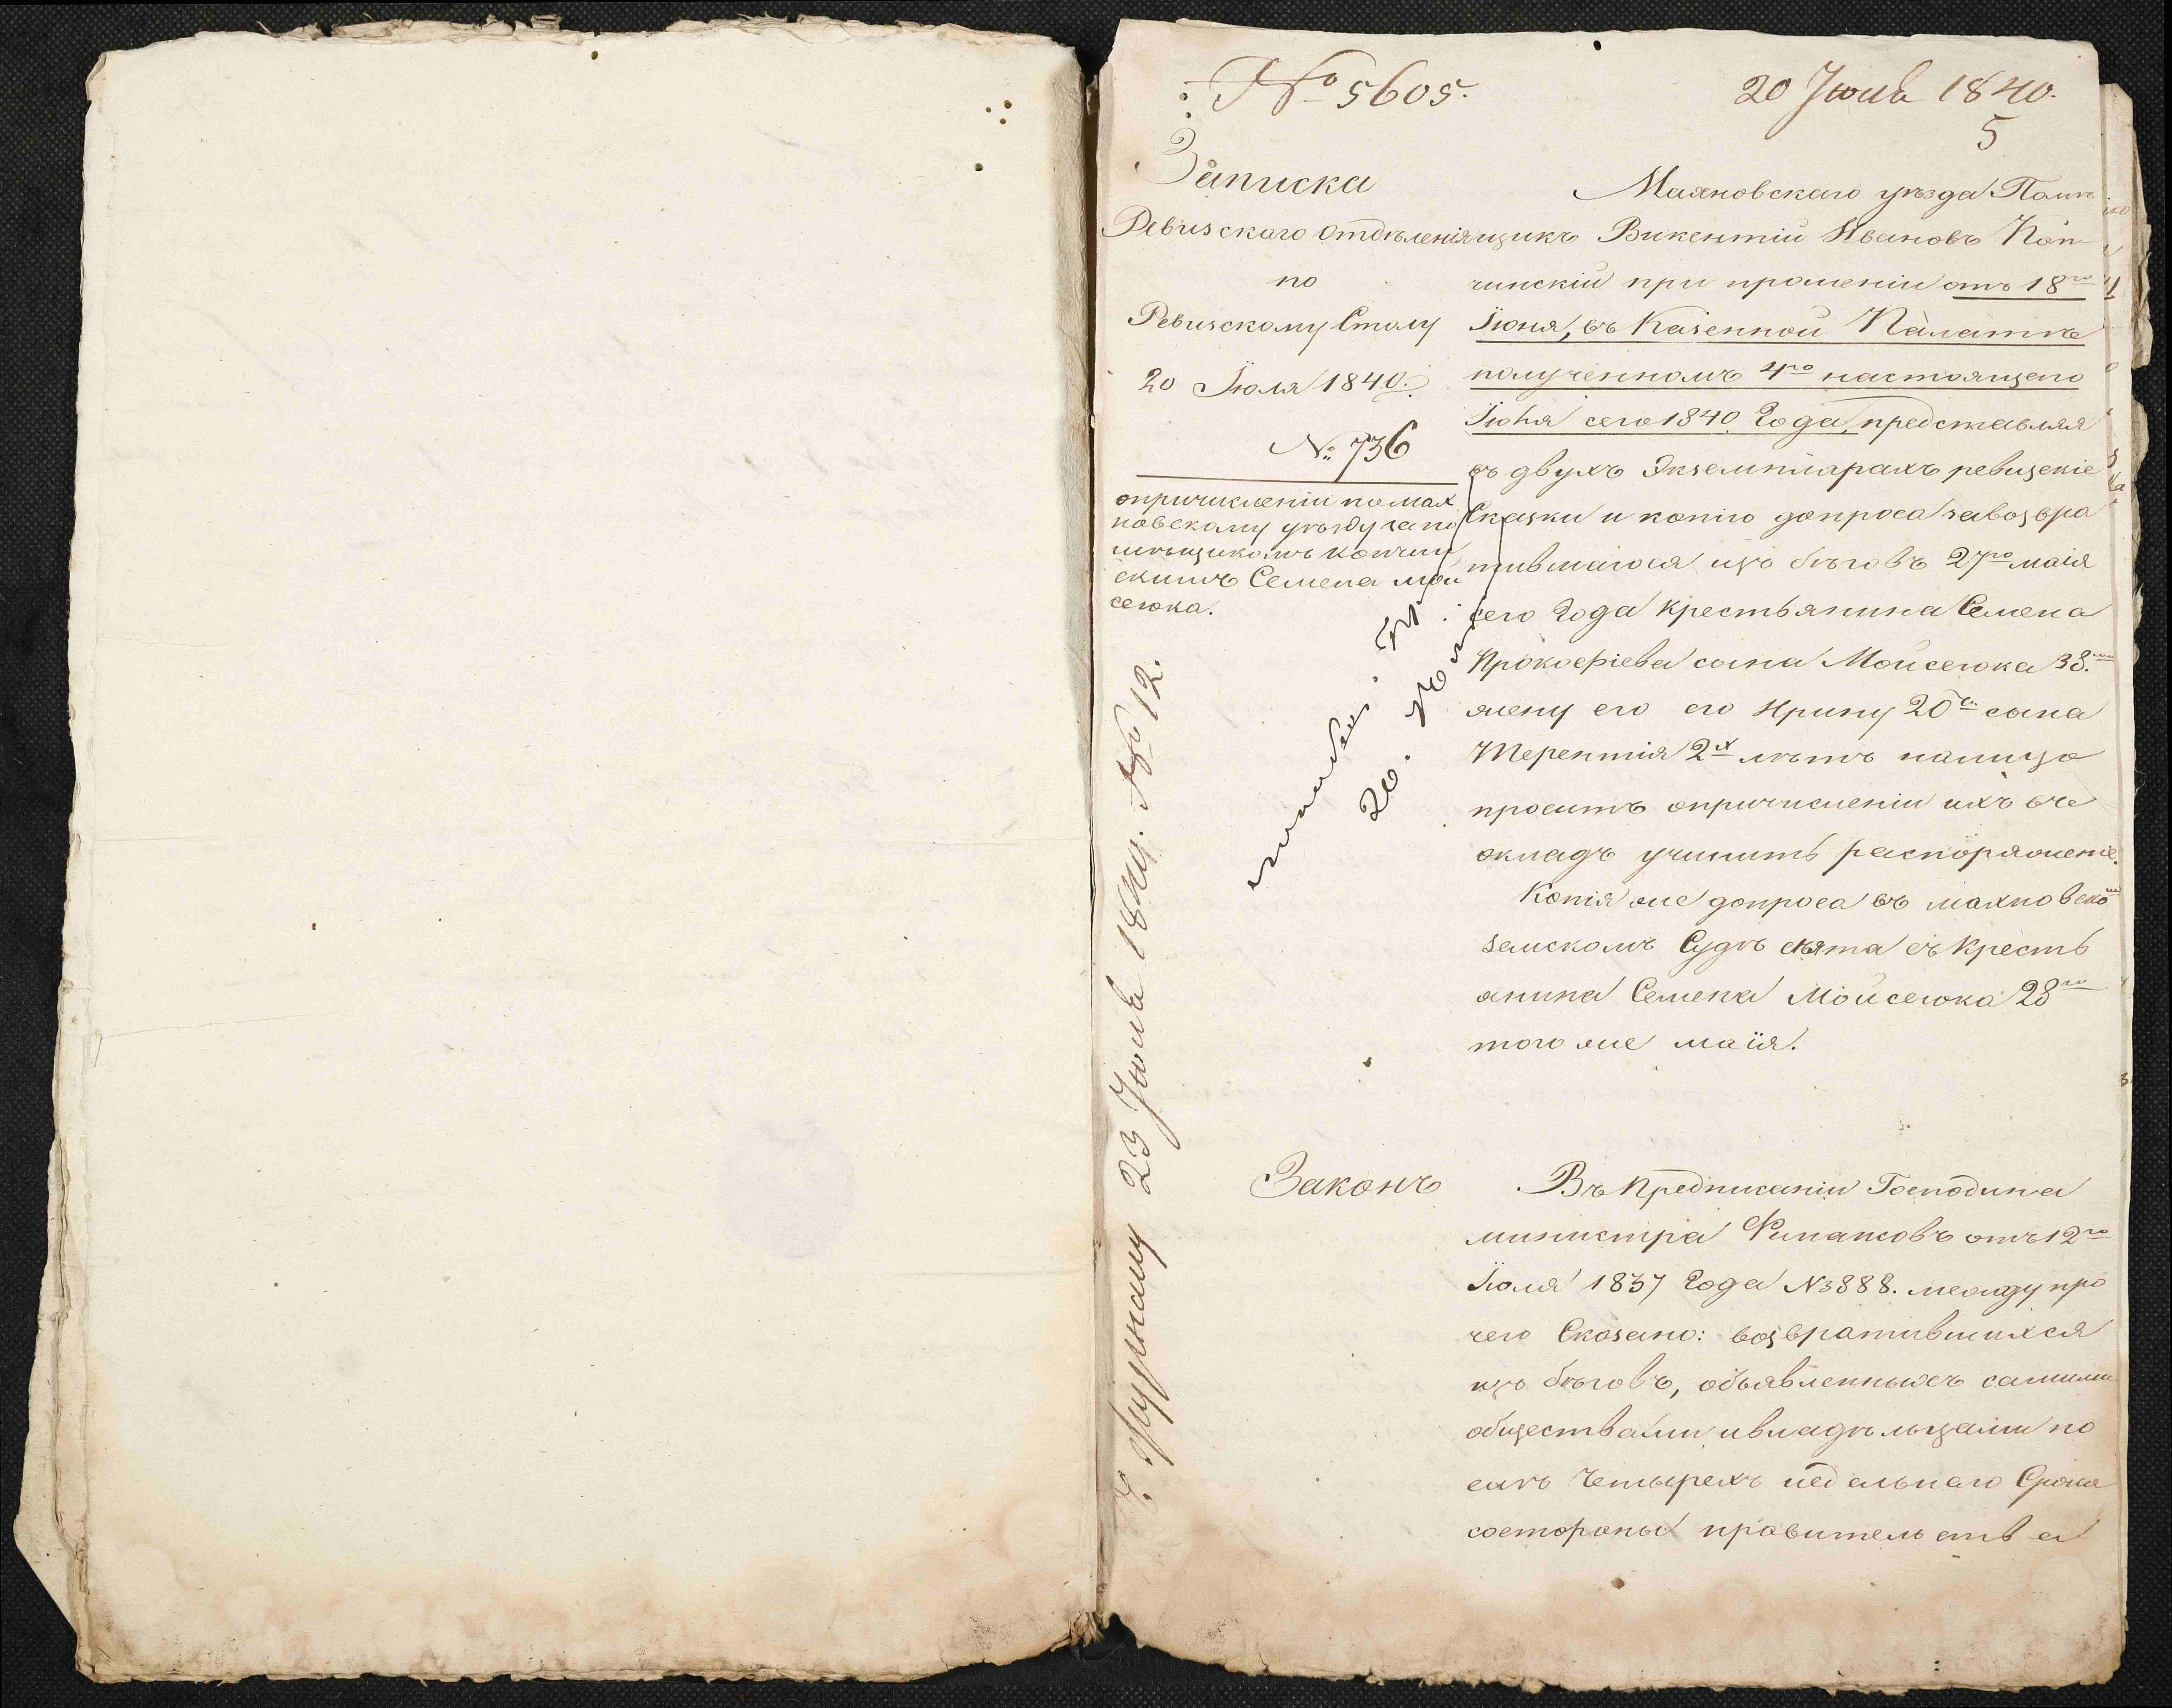 № 5605.
20 Июля 1840.
5
Записка
Ревизскаго Отдѣленія
по
Ревизскому Столу
20 Іюля 1840.
№ 736
опричисленіи по мах
новскому уѣзду за по
мѣщикомъ Копчин
скимъ Семена Мой
сеюка.
Махновскаго уѣзда Помѣ
щикъ Викентій Ивановъ Коп
чинскій при прошеніи отъ 18го
Іюня, въ Казенной Палатѣ
полученномъ 4го настоящего
Іюня сего 1840 Года, представляя
въ двухъ Экземплярахъ ревизскіе
Сказки и копію допроса завозвра
тившагося изъ бѣговъ 27го маія
сего Года крестьянина Семена
Прокофіева сына Мойсеюка 38.
жену его его Ирину 20 сына
Терентія 2х лѣтъ налицо
проситъ опричисленіи ихъ въ
окладъ учинить распоряженіе.
Копія же допроса въ махновско
земскомъ Судѣ снята съ Кресть
янина Семена Мойсеюка 28го
того же маія.
Законъ
Въ Предписаніи Господина
министра Финансовъ отъ 12го
Іюля 1837 Года № 3888. между про
чего Сказано: возвратившихся
изъ бѣговъ, объявленныхъ самими
обществами ивладѣльцами по
слѣ Четырехъ недѣльнаго Срока
состороны правительства
23 Июля 1840. № 12.